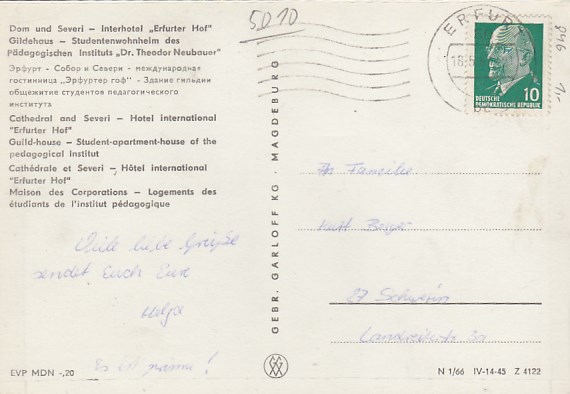 Dom und Severi – Interhotel „Erfurter Hof"
Gildehaus – Studentenwohnheim des
Pädagogischen Instituts „Dr. Theodor Neubauer"
Эрфурт - Собор и Севери - международная
гостинница „Эрфуртер гоф" - Здание гильдии
общежитие студентов педагогического
института
Cathedral and Severi – Hotel international
"Erfurter Hof"
Guild-house – Student-apartment-house of the
pedagogical Institut
Cathédrale et Severi – Hôtel international
"Erfurter Hof"
Maison des Corporations – Logements des
étudiants de l'institut pédagogique
Viele liebe Grüße
sendet Euch Eure
Helga
Es ist prima!
EVP MDN -,20
5010
GEBR. GARLOFF KG · MAGDEBURG
ERFURT
10
DEUTSCHE
DEMOKRATISCHE REPUBLIK
An Familie
Kurt
27 Schwerin
3a
N 1/66 IV-14-45 Z 4122